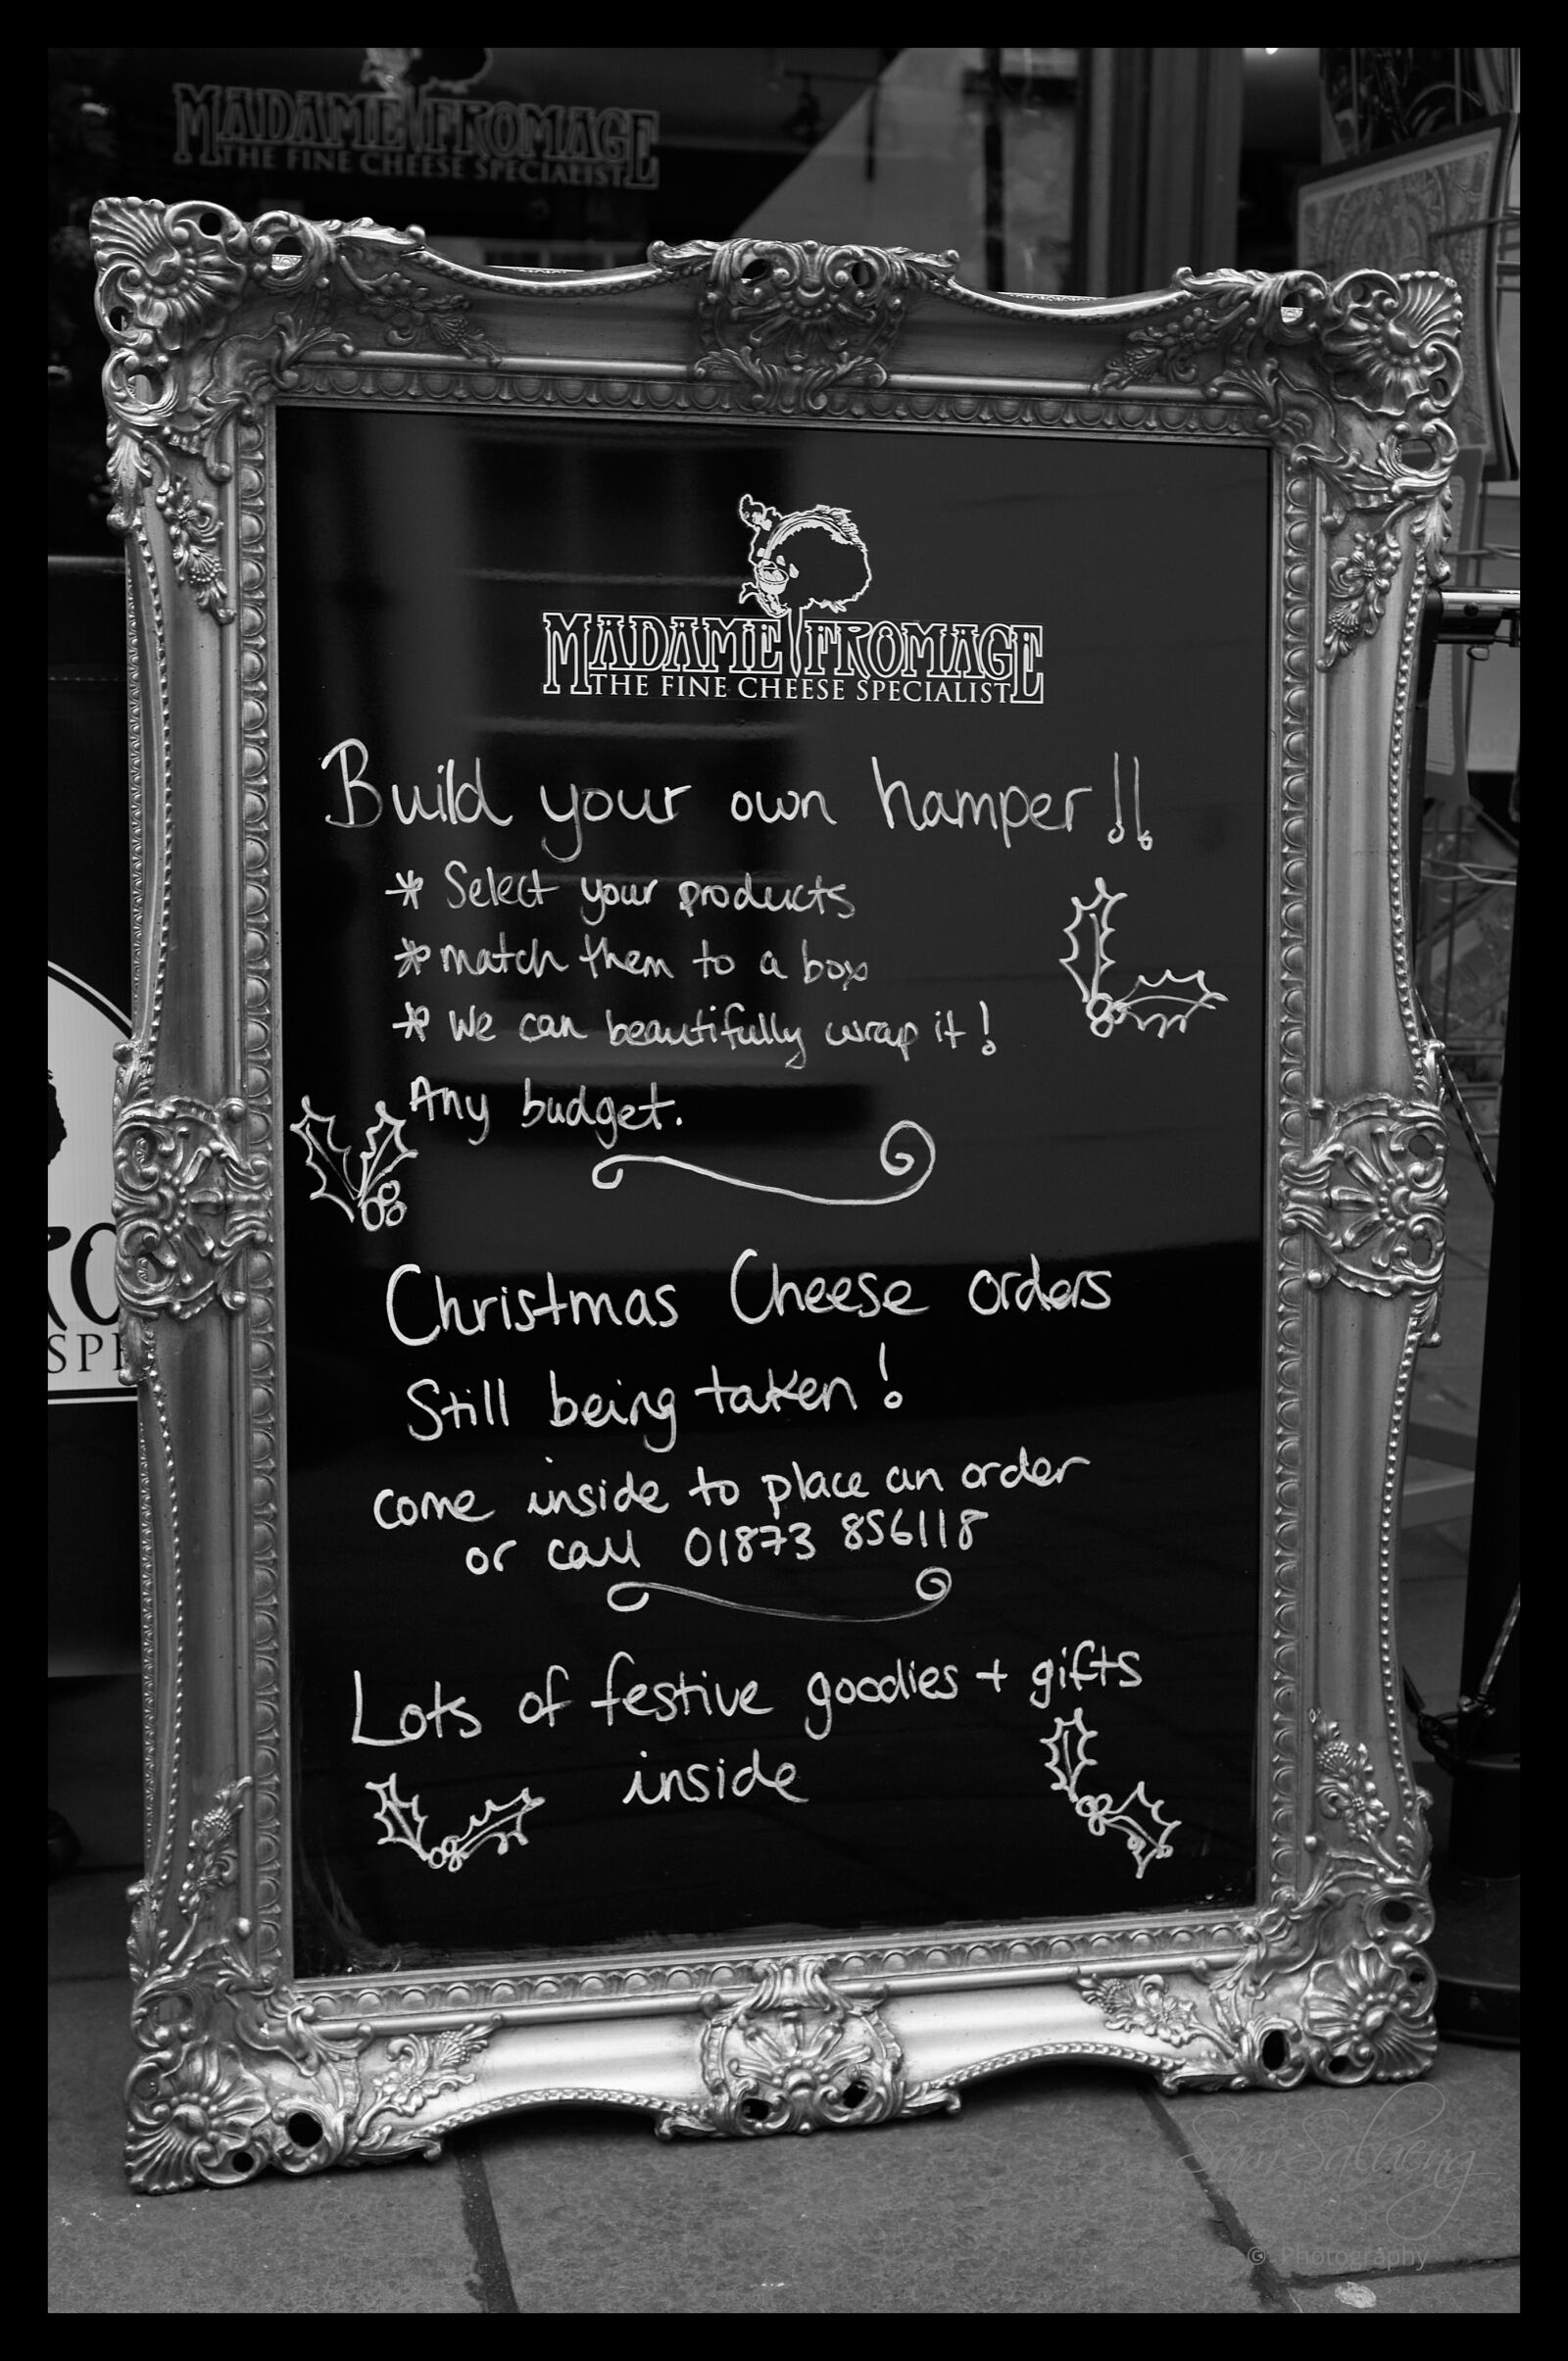 MADAME FROMAGE
THE FINE CHEESE SPECIALIST
MADAME FROMAGE
THE FINE CHEESE SPECIALIST
Build your own hamper!!
* Select your products
* match them to a box
* We can beautifully wrap it!
Any budget.
Christmas Cheese orders
Still being taken!
come inside to place an order
or call 01873 856118
Lots of festive goodies + gifts
inside
RO
SPE
© Photography